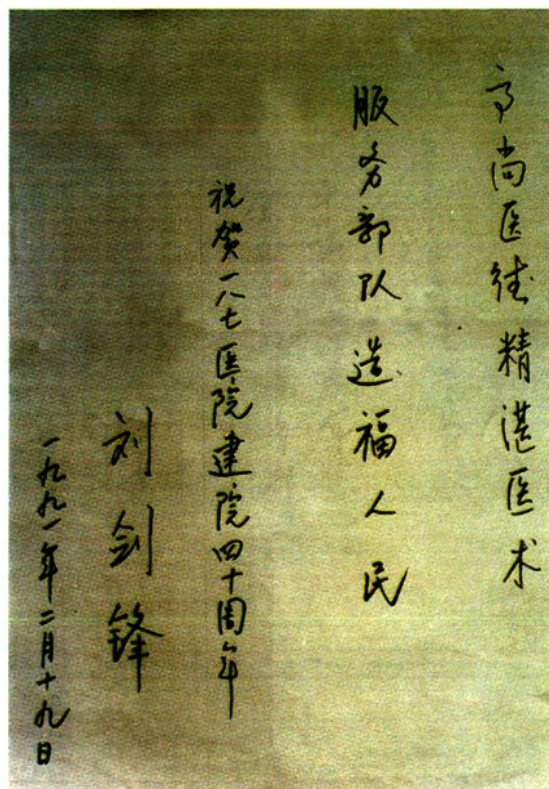 高尚医德精湛医术
服务部队造福人民
祝贺一八七医院建院四十周年
刘剑锋
一九九一年二月十九日